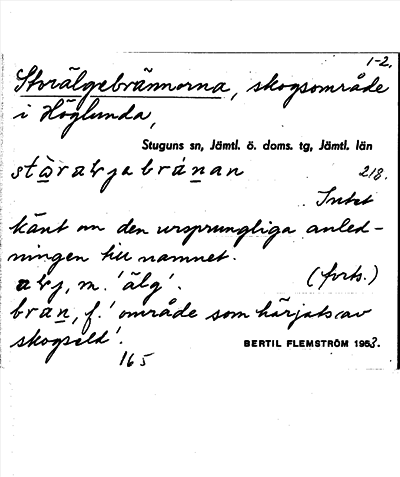 1-2.
Storälgebrännorna, skogsområde
i Höglunda,
Stuguns sn, Jämtl. ö. doms. tg, Jämtl. län
218.
Intet
känt om den ursprungliga anled-
ningen till namnet.
m. 'älg'. (forts.)
bran, f. 'område som härjats av
skogseld'.
165
BERTIL FLEMSTRÖM 1963.